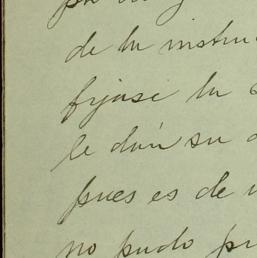 de la instru
fijase la
le dan su
pues es de
no pudo pr